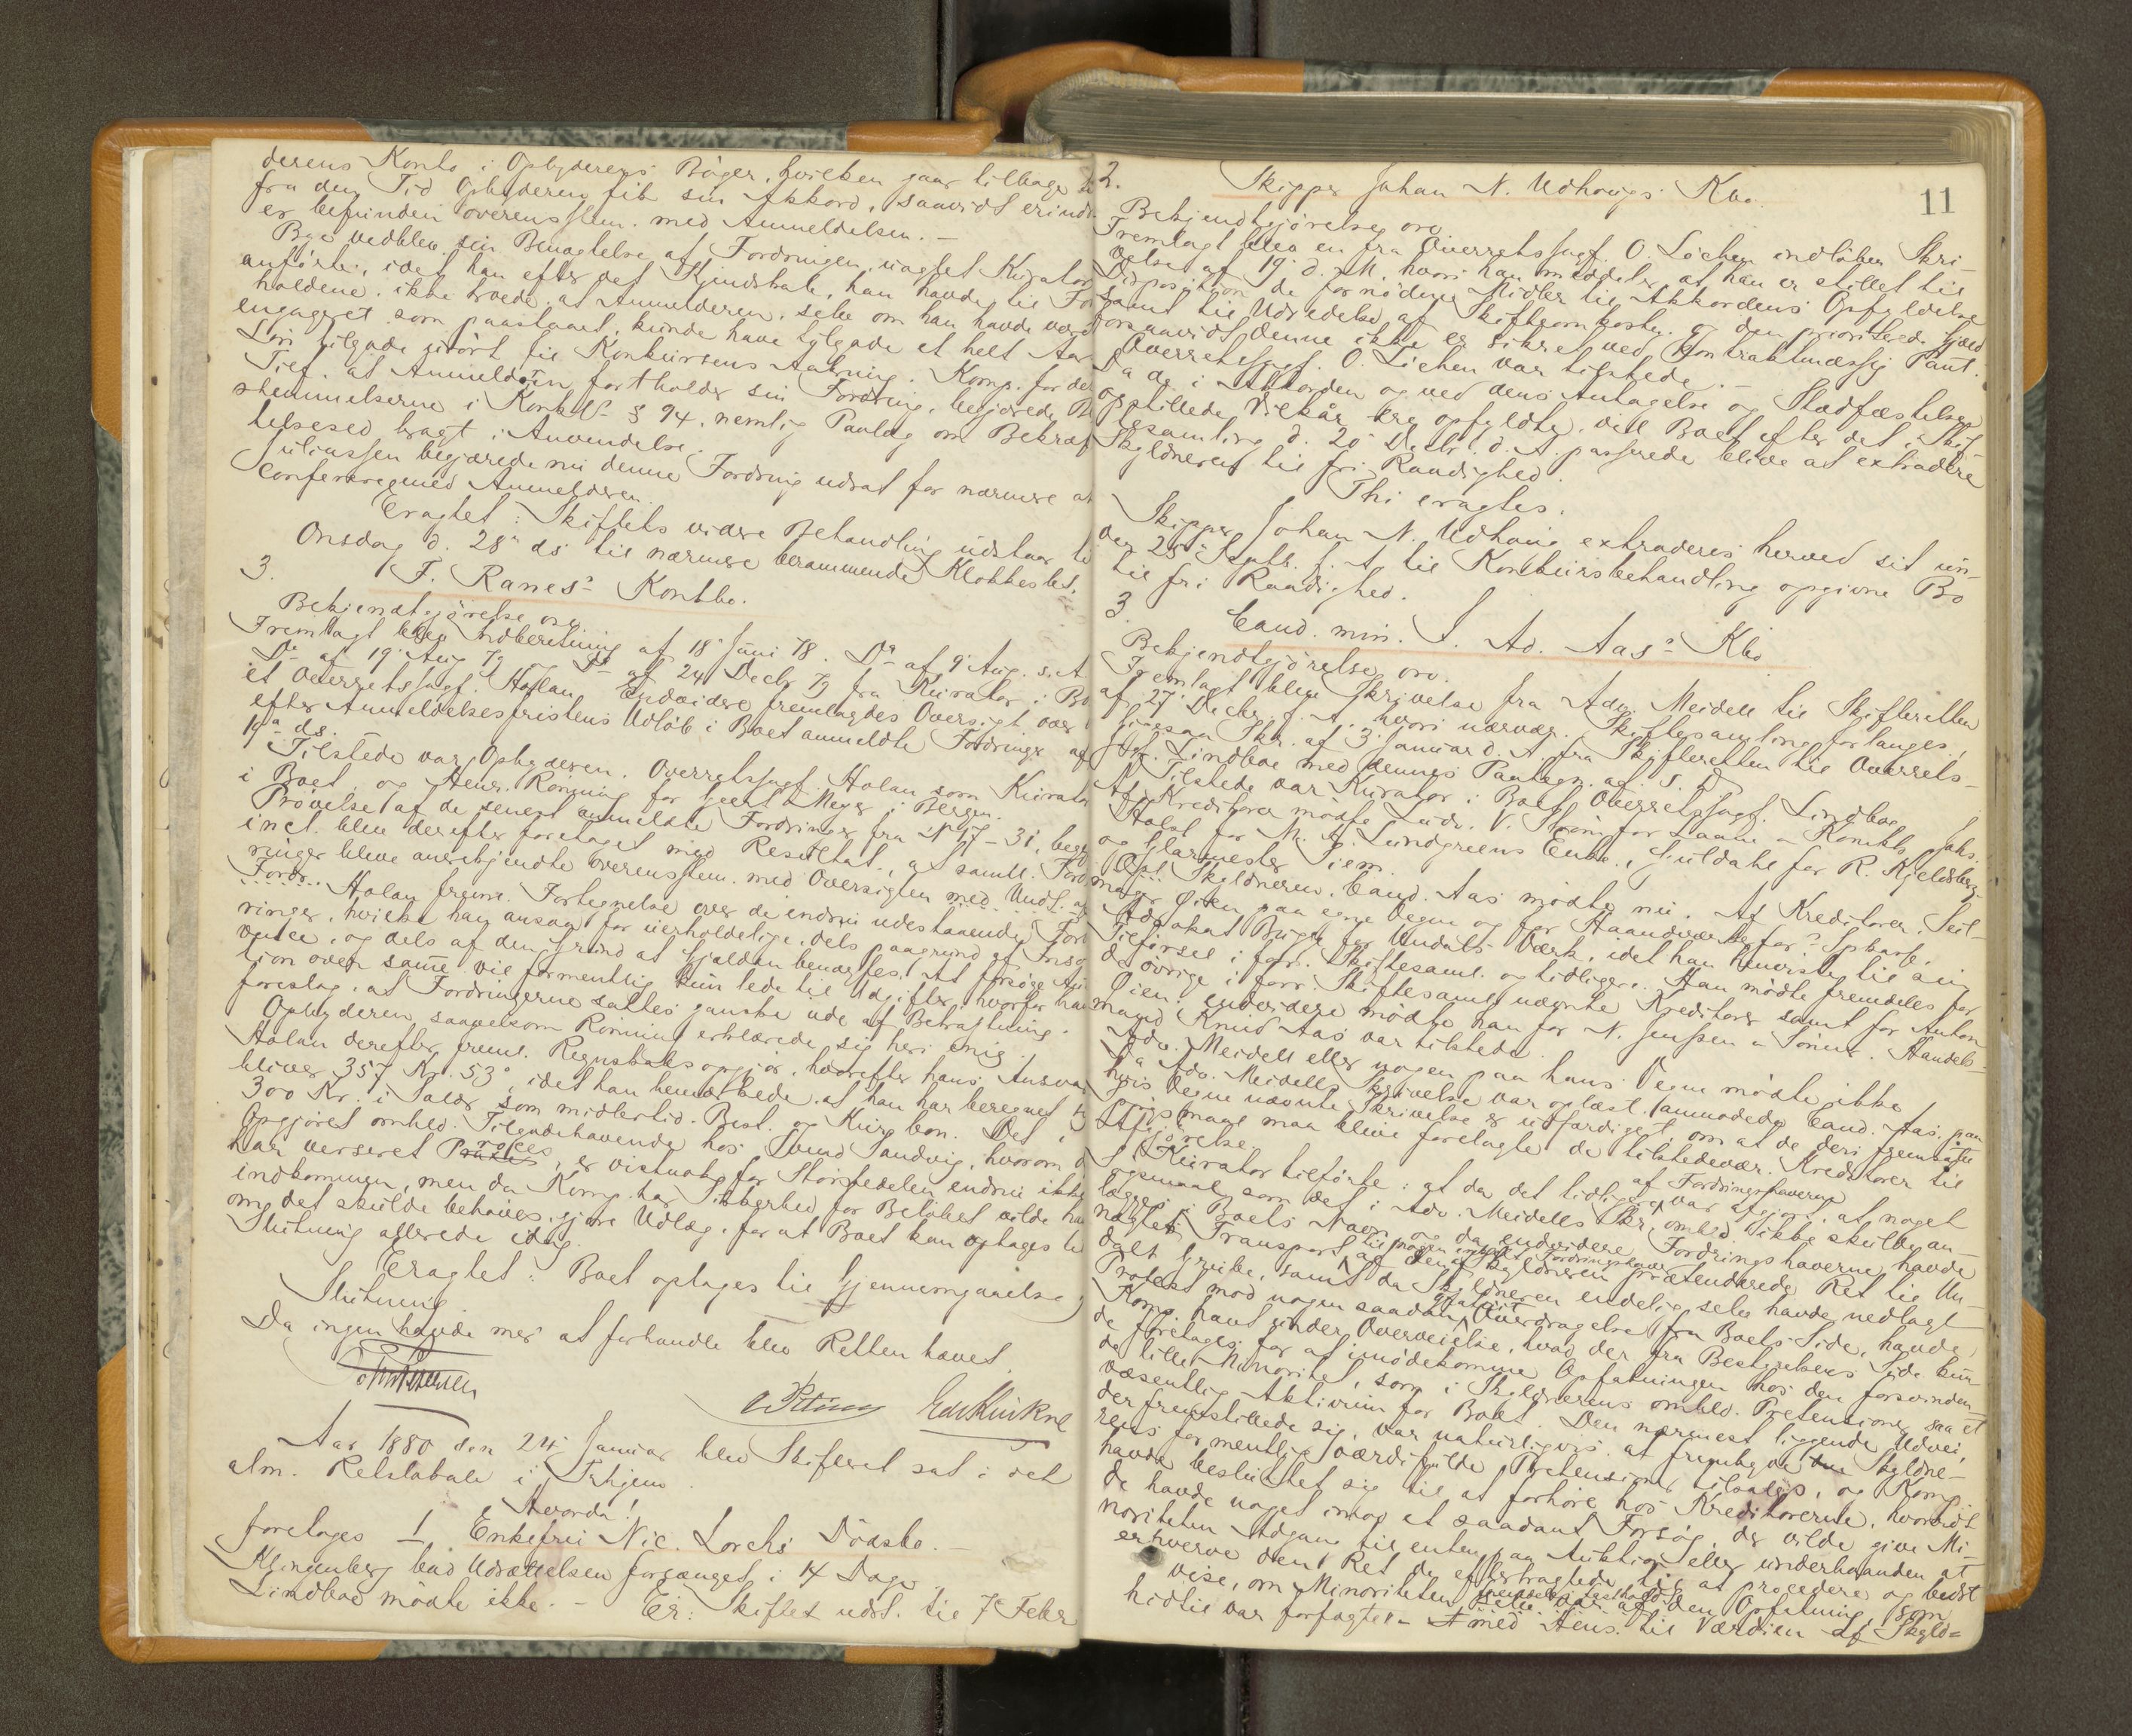 derens Konto i Opbyderens Bøger, hvilken gaar tilbage
fra den Tid Opbyderen fik sin Akkord, saavidt erind
er befunden overensstem. med Anmeldelsen. –
Bye vedblev sin Benægtelse af Fordringen, uagtet Kurator
anførte, idet han efter det Kjendskab, han havde til For
holdene, ikke troede, at Anmelderen, selv om han havde været
engageret som paastaaet, kunde have tilgode et helt Aars
Løn tilgode ført til Konkursens Aabning. Komp. for det
Tilf. at Anmelderen fortholder sin Fordring, begjærede Be
stemmelserne i Konkl. § 94, nemlig Paalæg om Bekræf
telsesed bragt i Anvendelse.
Juliussen begjærede nu denne Fordring udsat for nærmere at
conferere med Anmelderen.
Eragtet: Skiftets videre Behandling udstaar til
Onsdag d. 28de ds til nærmere berammende Klokkeslet.
3. F. Ranes' Konkbo.
Bekjendtgjørelse oro.
Fremlagt blev Indberetning af 18de Juni 78. Do af 9de Aug. s. A.
Do af 19de Aug 79, Do af 24 Decbr 79 fra Kurator i Bo
et Overretssagf. Holan. Endvidere fremlagdes Oversigt over
efter Anmeldelsesfristens Udløb i Boet anmeldte Fordringer af
19de ds.
Tilstede var Opbyderen, Overretssagf. Holan som Kurator
i Boet, og Henr. Rønning for Geert Meyer i Bergen.
Prøvelse af de senest anmeldte Fordringer fra No 17 – 31, begge
incl. blev derefter foretaget med Resultat, at samtl. Ford
ringer bleve anerkjendte overensstem. med Oversigten med Undt. af
Fordr.
Holan freml. Fortegnelse over de endnu udestaaende Ford
ringer, hvilke han ansaa for uerholdelige, dels paagrund af Insol
vence, og dels af den Grund at Gjælden benægtes. At forsøge Auk
tion over samme vil formentlig kun lede til Udgifter, hvorfor han
foreslog, at Fordringerne sattes ganske ude af Betragtning.
Opbyderen saavelsom Rønning erklærede sig heri enig.
Holan derefter freml. Regnskabsopgjør, hvorefter hans Ansvar
bliver 357 Kr. 53 ø, idet han bemærkede, at han har beregnet sig
300 Kr. i Salær som midlertid. Best. og Kurg bon. Det i
Opgjøret omhl. Tilgodehavende hos Svend Sandvig, hvorom der
har verseret Proces, er vistnok for Størstedelen endnu ikke
indkommen, men da Komp. har Sikkerhed for Beløbet vilde han
om det skulde behøves, gjøre Udlæg, for at Boet kan optages til
Slutning allerede idag.
Eragtet: Boet optages til Gjennemgaaelse og
Slutning.
Da ingen havde mer at forhandle blev Retten hævet.
Edv Klinkne
Aar 1880 den 24 Januar blev Skifteret sat i det
alm. Retslokale i Trhjem.
Hvorda!
foretoges 1. Enkefru Nic. Lorchs Dødsbo. –
Klingenberg bad Udsættelsen forlænget i 14 Dage.
Lindboe mødte ikke. – Er: Skiftet udst. til 7de Febr
11
2. Skipper Johan N. Udhaugs Kbo.
Bekjendtgjørelse oro.
Fremlagt blev en fra Overretssagf. O. Løchen indløben Skri-
velse af 19de d. M., hvori han meddeler, at han er stillet til
Disposition de fornødne Midler til Akkordens Opfyldelse
samt til Udredelse af Skifteomkostn. og den prioriterede Gjæld
forsaavidt denne ikke er sikret ved Kontraktmæssig Pant.
Overretssagf. O. Løchen var tilstede. –
Da de i Akkorden og ved dens Antagelse og Stadfæstelse
opstillede Vilkår ere opfyldte, vil Boet efter det i Skif-
tesamling d. 20de Decbr. f. A. passerede blive at extradere
Skyldneren til fri Raadighed.
Thi eragtes.
Skipper Johan N. Udhaug extraderes herved sit un-
der 25de Septb. f. A. til Konkursbehandling opgivne Bo
til fri Raadighed.
3. Cand. min. I. Ad. Aas's Kbo
Bekjendtgjørelse oro.
Fremlagt blev Skrivelse fra Adv. Meidell til Skifteretten
af 27. Decbr. f. A. hvori nærvær. Skiftesamling forlanges,
ligesaa Skr. af 3. Januar d. A. fra Skifteretten til Overrets-
sagf. Lindboe med dennes Paategn. af S. D.
Tilstede var Kurator i Boet, Overretssagf. Lindboe.
Af Kreditorer mødte Ludv. V. Strøm for Laane- & Kontkb., Joh.
Holst for M. A. Lundgreens Enke, Huldahl for R. Kjeldsberg,
og Glarmester Siem.
Opr. Skyldneren. Cand. Aas mødte nu. Af Kreditorer, Seil-
mager Øien paa egne Vegne og for Haandværkerfor. Spbank.
Advokat Bugge for Undals Værk, idet han henviste til sin
Tilførsel i forr. Skiftesaml. og tidligere. Han mødte fremdeles for
de øvrige i forr. Skiftesaml. nævnte Kreditorer samt for Anton
Øien; endvidere mødte han for N. Jenssen & Sønner. Handels-
mand Knud Aas var tilstede.
Adv. Meidell eller nogen paa hans Vegne mødte ikke.
Da Adv. Meidells Skrivelse var oplæst, anmodede Cand. Aas, paa
hvis Vegne nævnte Skrivelse er udfærdiget, om at de deri fremsatte
Spørgsmaal maa blive forelagte de tilstedevær. Kreditorer til
Afgjørelse.
Kurator tilførte: at da det tidligere af Fordringshaverne var afgjort, at noget
Søgsmaal som det i Adv. Meidells Skr. omhld. ikke skulde an-
lægges i Boets Navn og da endvidere Fordringshaverne havde
nægtet Transport til nogen enkelt Fordringshaver af den af Skyldneren prætenderede Ret til Un-
dals Grube, samt da Skyldneren endelig selv havde nedlagt
Protest mod nogen saadan gratuit Overdragelse fra Boets Side, havde
Komp. havt under Overveielse, hvad der fra Bestyrelsens Side kun-
de foretages for at imødekomme Opfatningen hos den forsvinden-
de lille Minoritet, som i Skyldnerens omhld. Pretensioner saa et
væsentlig Aktivum for Boet. Den nærmest liggende Udvei,
der fremstillede sig, var naturligvis at frembyde Skyldne-
rens formentlig værdifulde Pretensioner tilsalgs, og Komp.
havde besluttet sig til at forhøre hos Kreditorerne, hvorvidt
de havde noget imod et saadant Forsøg, der vilde give Mi-
noriteten Adgang til enten paa Auktion eller underhaanden at
erhverve den Ret de eftertragtede til at procedere og bedst
vise, om Minoriteten fremdeles fastholdt den Opfatning, som
hidtil var forfægtet – med Hens. til Værdien af Skyld=